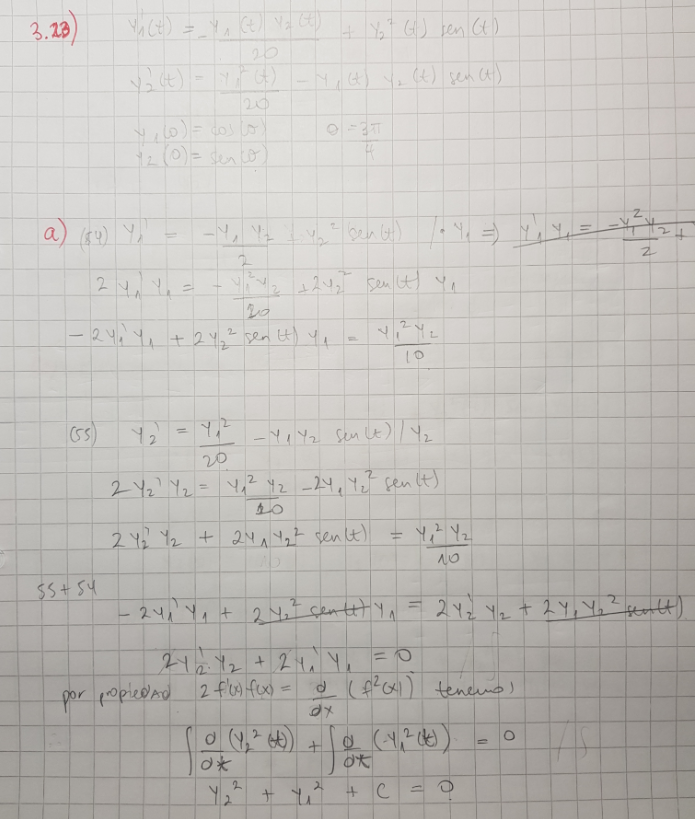 3.23) y₁'(t) = -y₁(t) y₂(t)/20 + y₂²(t) sen(t)
y₂'(t) = y₁²(t)/20 - y₁(t) y₂(t) sen(t)
y₁(0) = cos(θ) θ = 3π/4
y₂(0) = sen(θ)
a) (54) y₁' = -y₁ y₂/2 + y₂² sen(t) /· y₁ ⇒ y₁' y₁ = -y₁² y₂/2 +
2 y₁' y₁ = -y₁² y₂/20 + 2y₂² sen(t) y₁
- 2y₁' y₁ + 2y₂² sen(t) y₁ = y₁² y₂/10
(55) y₂' = y₁²/20 - y₁ y₂ sen(t) / y₂
2 y₂' y₂ = y₁² y₂/10 - 2y₁ y₂² sen(t)
2 y₂' y₂ + 2y₁ y₂² sen(t) = y₁² y₂/10
55 + 54
- 2y₁' y₁ + 2y₂² sen(t) y₁ = 2y₂' y₂ + 2y₁ y₂² sen(t)
2y₂' y₂ + 2y₁' y₁ = 0
por propiedad 2 f'(x) f(x) = d/dx (f²(x)) tenemos
∫ d/dt (y₂²(t)) + ∫ d/dt (y₁²(t)) = 0 /∫
y₂² + y₁² + C = 0